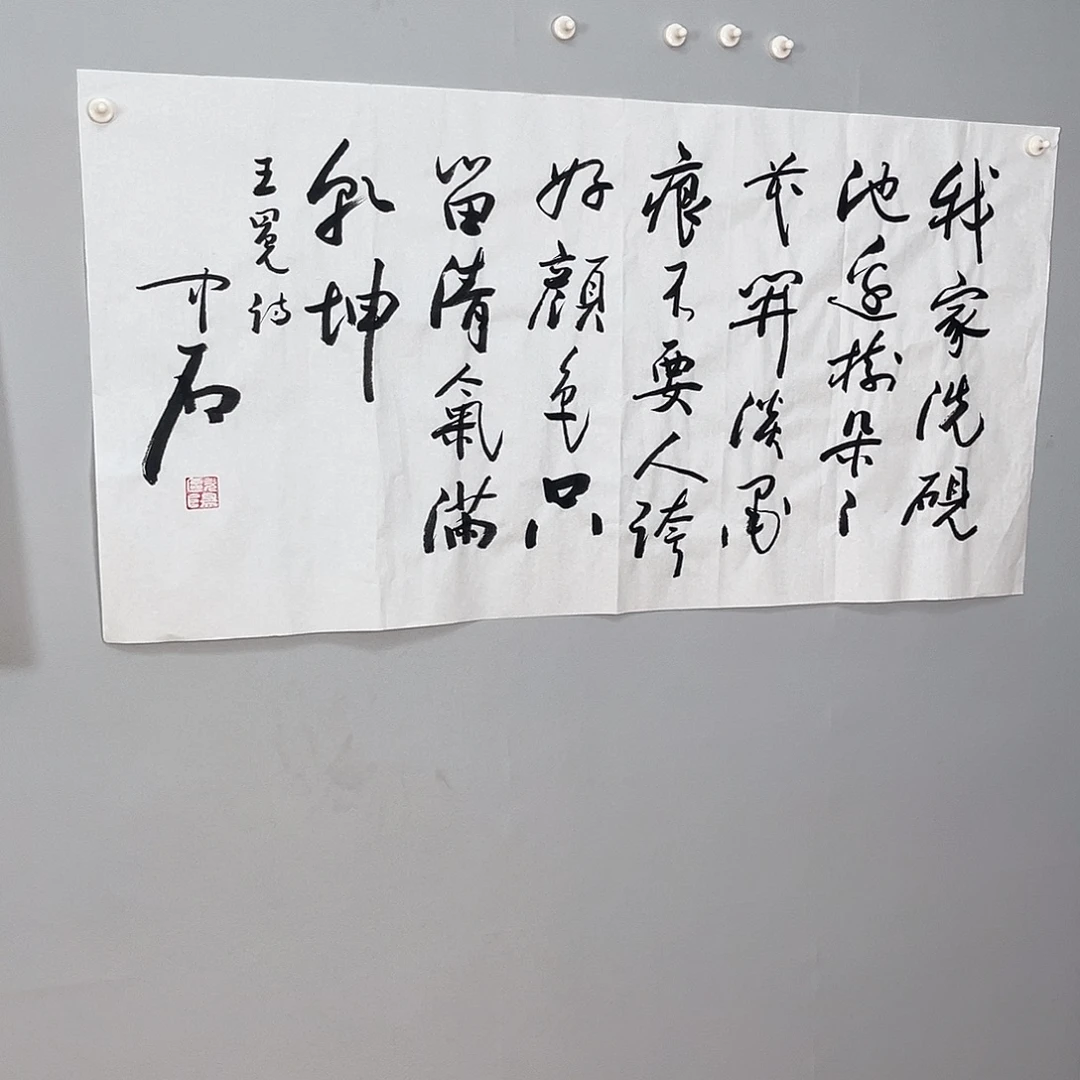 我家洗硯
池邊樹朵〻
花開淡墨
痕不要人誇
好顏色只
留清氣滿
乾坤
王冕詩
中石